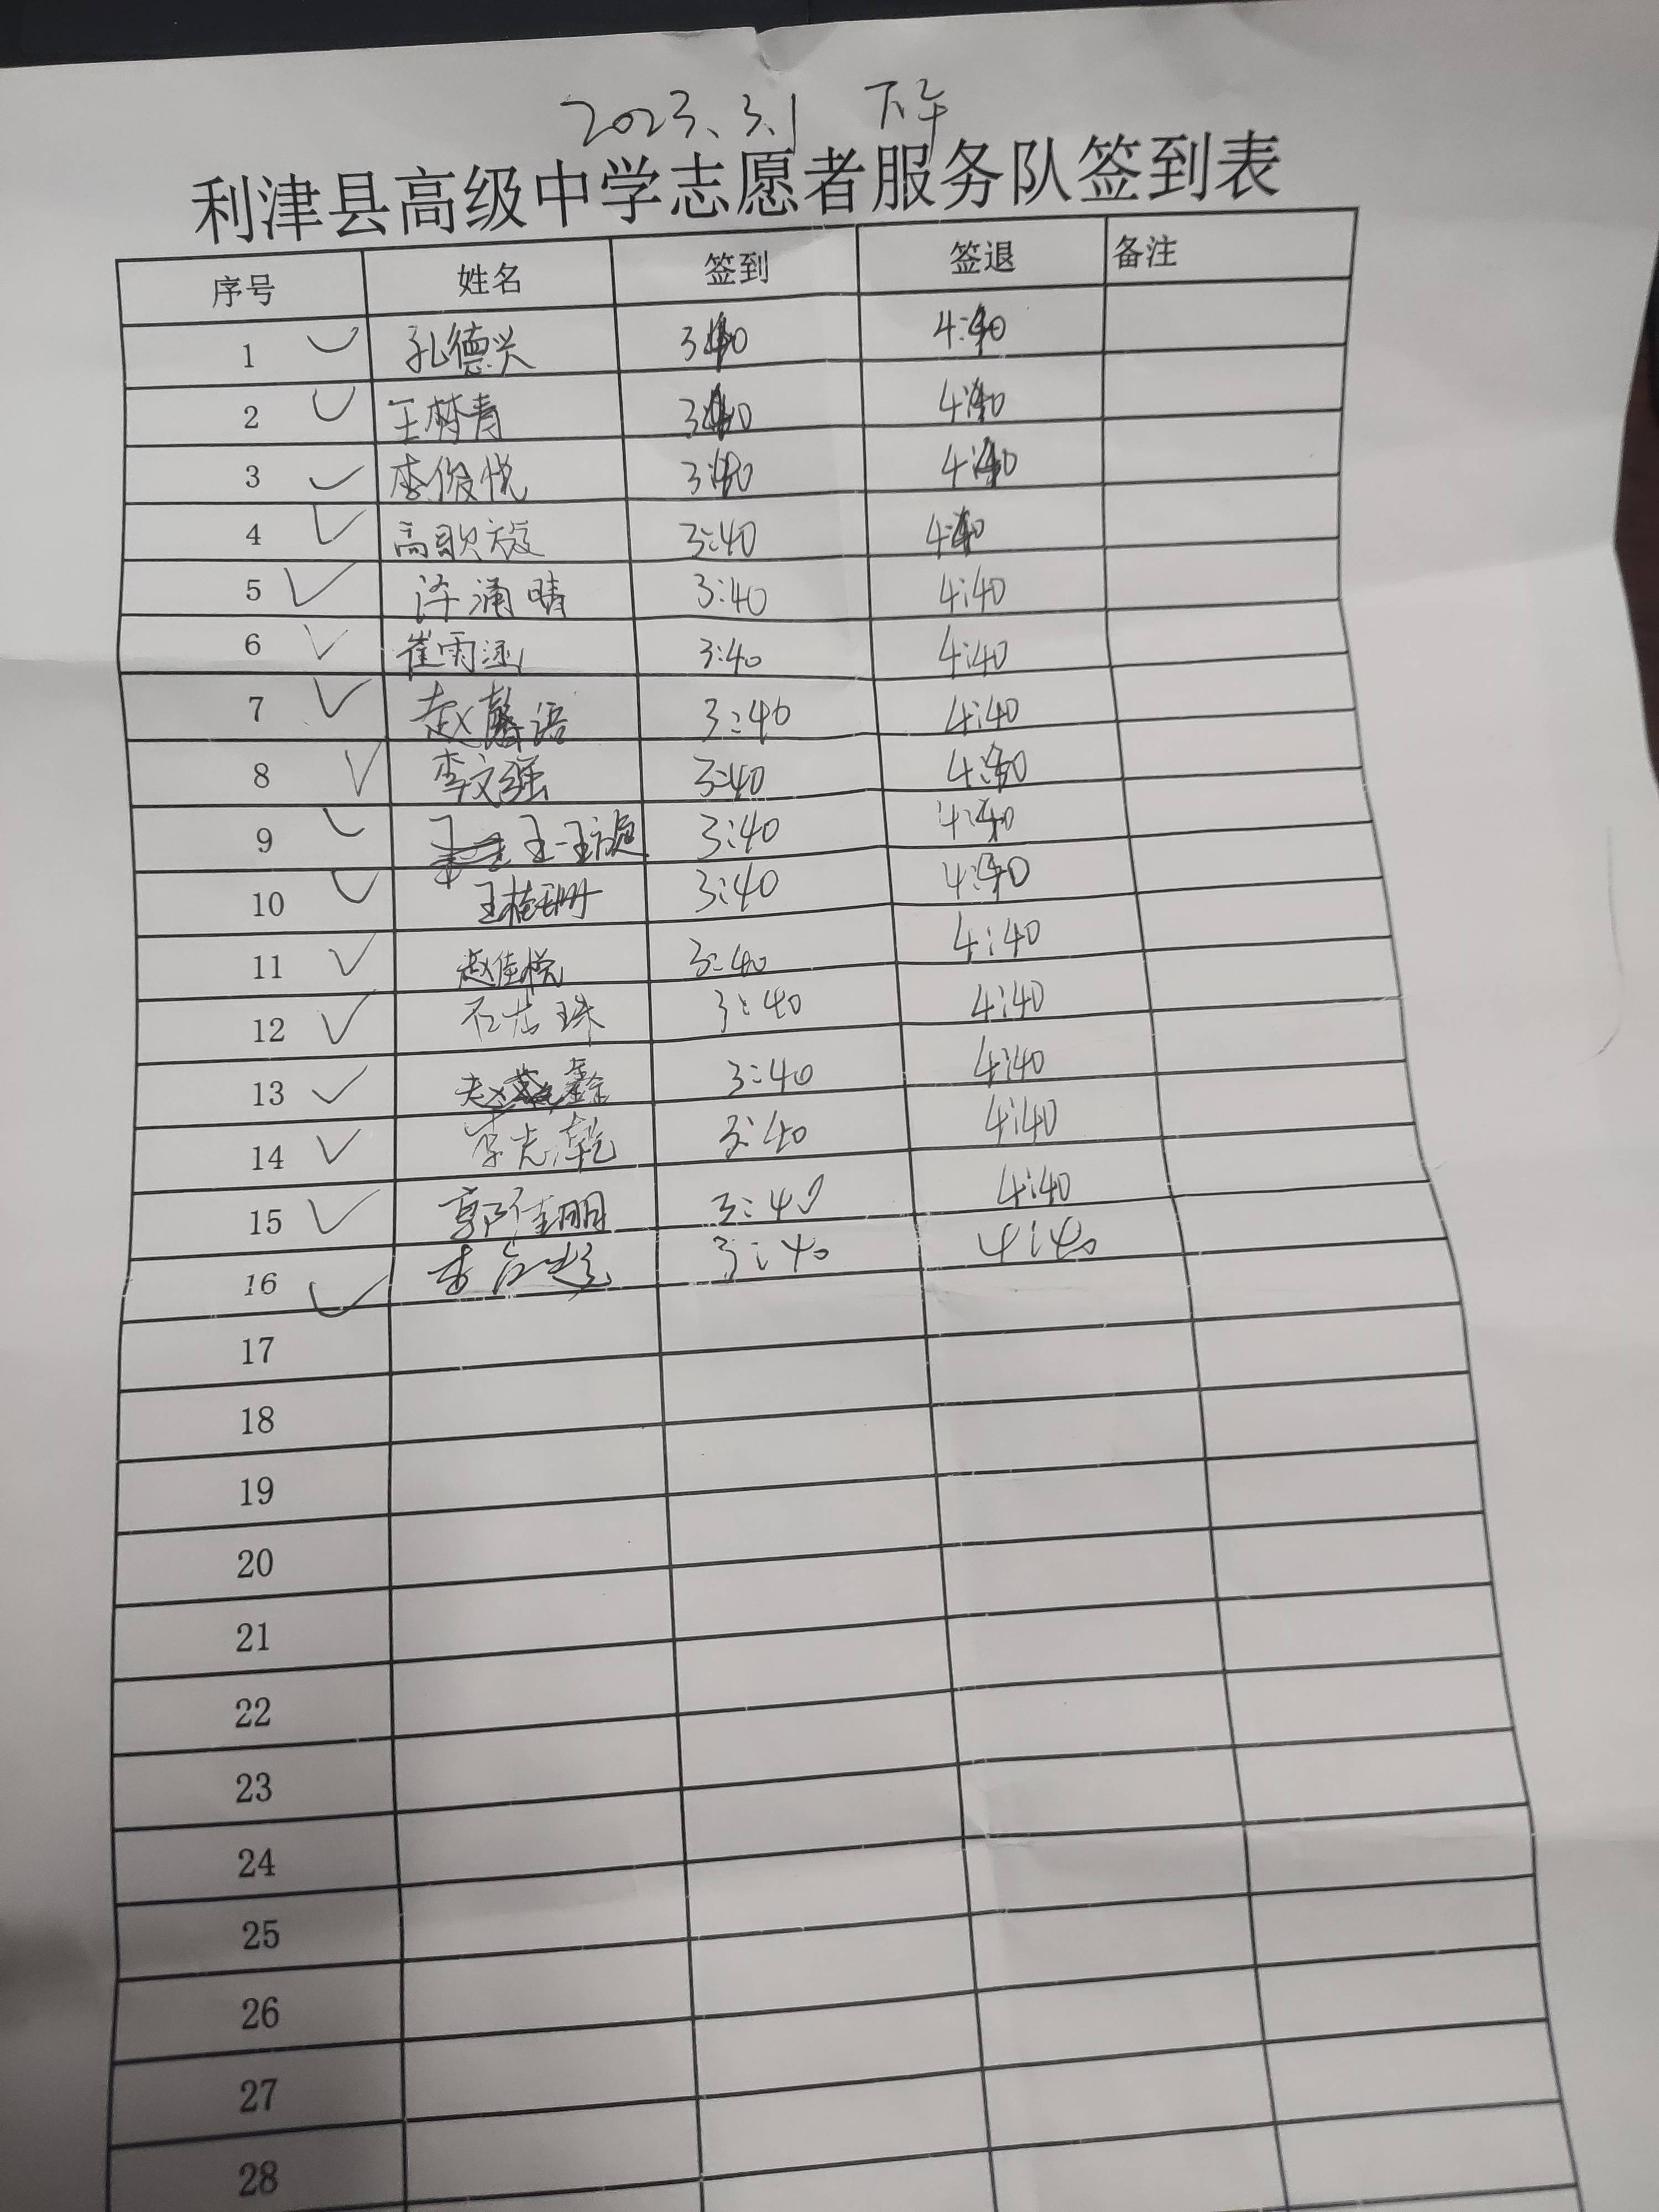 2023.3.1 下午
利津县高级中学志愿者服务队签到表
序号 姓名 签到 签退 备注
1 孔德兴 3:40 4:40
2 王梦青 3:40 4:40
3 李俊悦 3:40 4:40
4 高歌旋 3:40 4:40
5 涌晴 3:40 4:40
6 崔雨涵 3:40 4:40
7 赵馨语 3:40 4:40
8 李文强 3:40 4:40
9 王 3:40 4:40
10 王桂珊 3:40 4:40
11 赵佳悦 3:40 4:40
12 石岩珠 3:40 4:40
13 赵鑫 3:40 4:40
14 李志乾 3:40 4:40
15 郭佳明 3:40 4:40
16 李 3:40 4:40
17
18
19
20
21
22
23
24
25
26
27
28